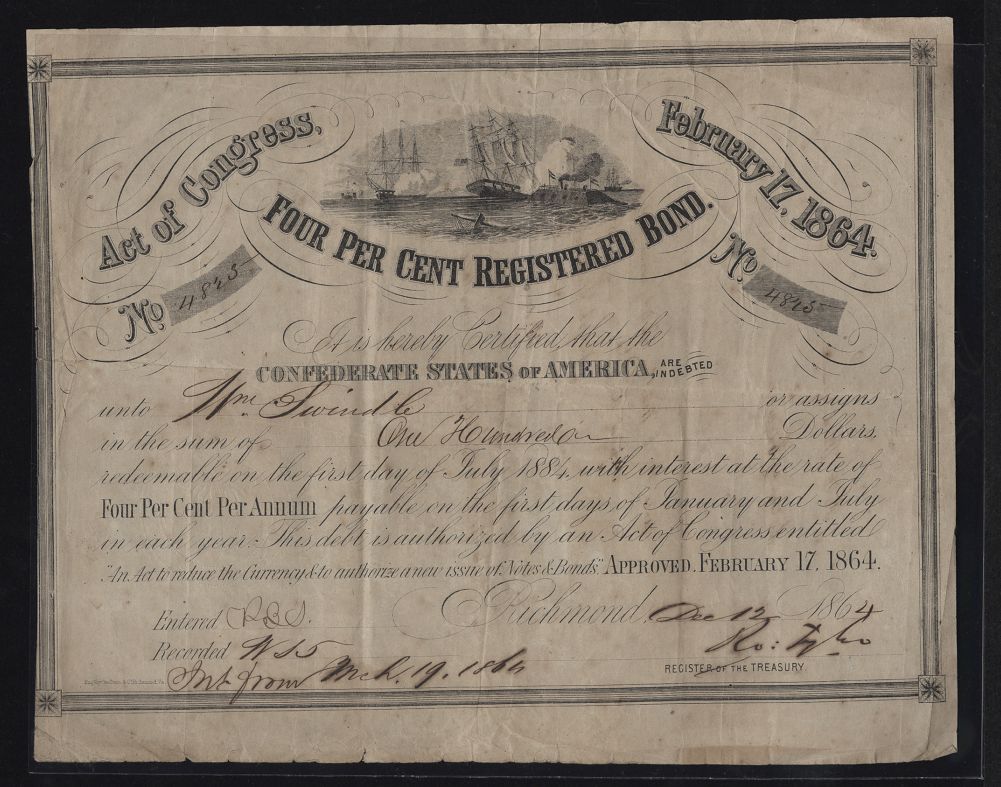 Act of Congress, February 17, 1864.
FOUR PER CENT REGISTERED BOND.
No 4825 No 4825
It is hereby Certified that the
CONFEDERATE STATES OF AMERICA, ARE INDEBTED
unto Wm. Swindle or assigns
in the sum of One Hundred Dollars.
redeemable on the first day of July 1884, with interest at the rate of
Four Per Cent Per Annum payable on the first days of January and July
in each year. This debt is authorized by an Act of Congress entitled
"An Act to reduce the Currency & to authorize a new issue of Notes & Bonds." APPROVED. FEBRUARY 17, 1864.
Entered Richmond, Dec 12 1864
Recorded Ro: Tyler
REGISTER OF THE TREASURY.
Int from Mch. 19. 1864